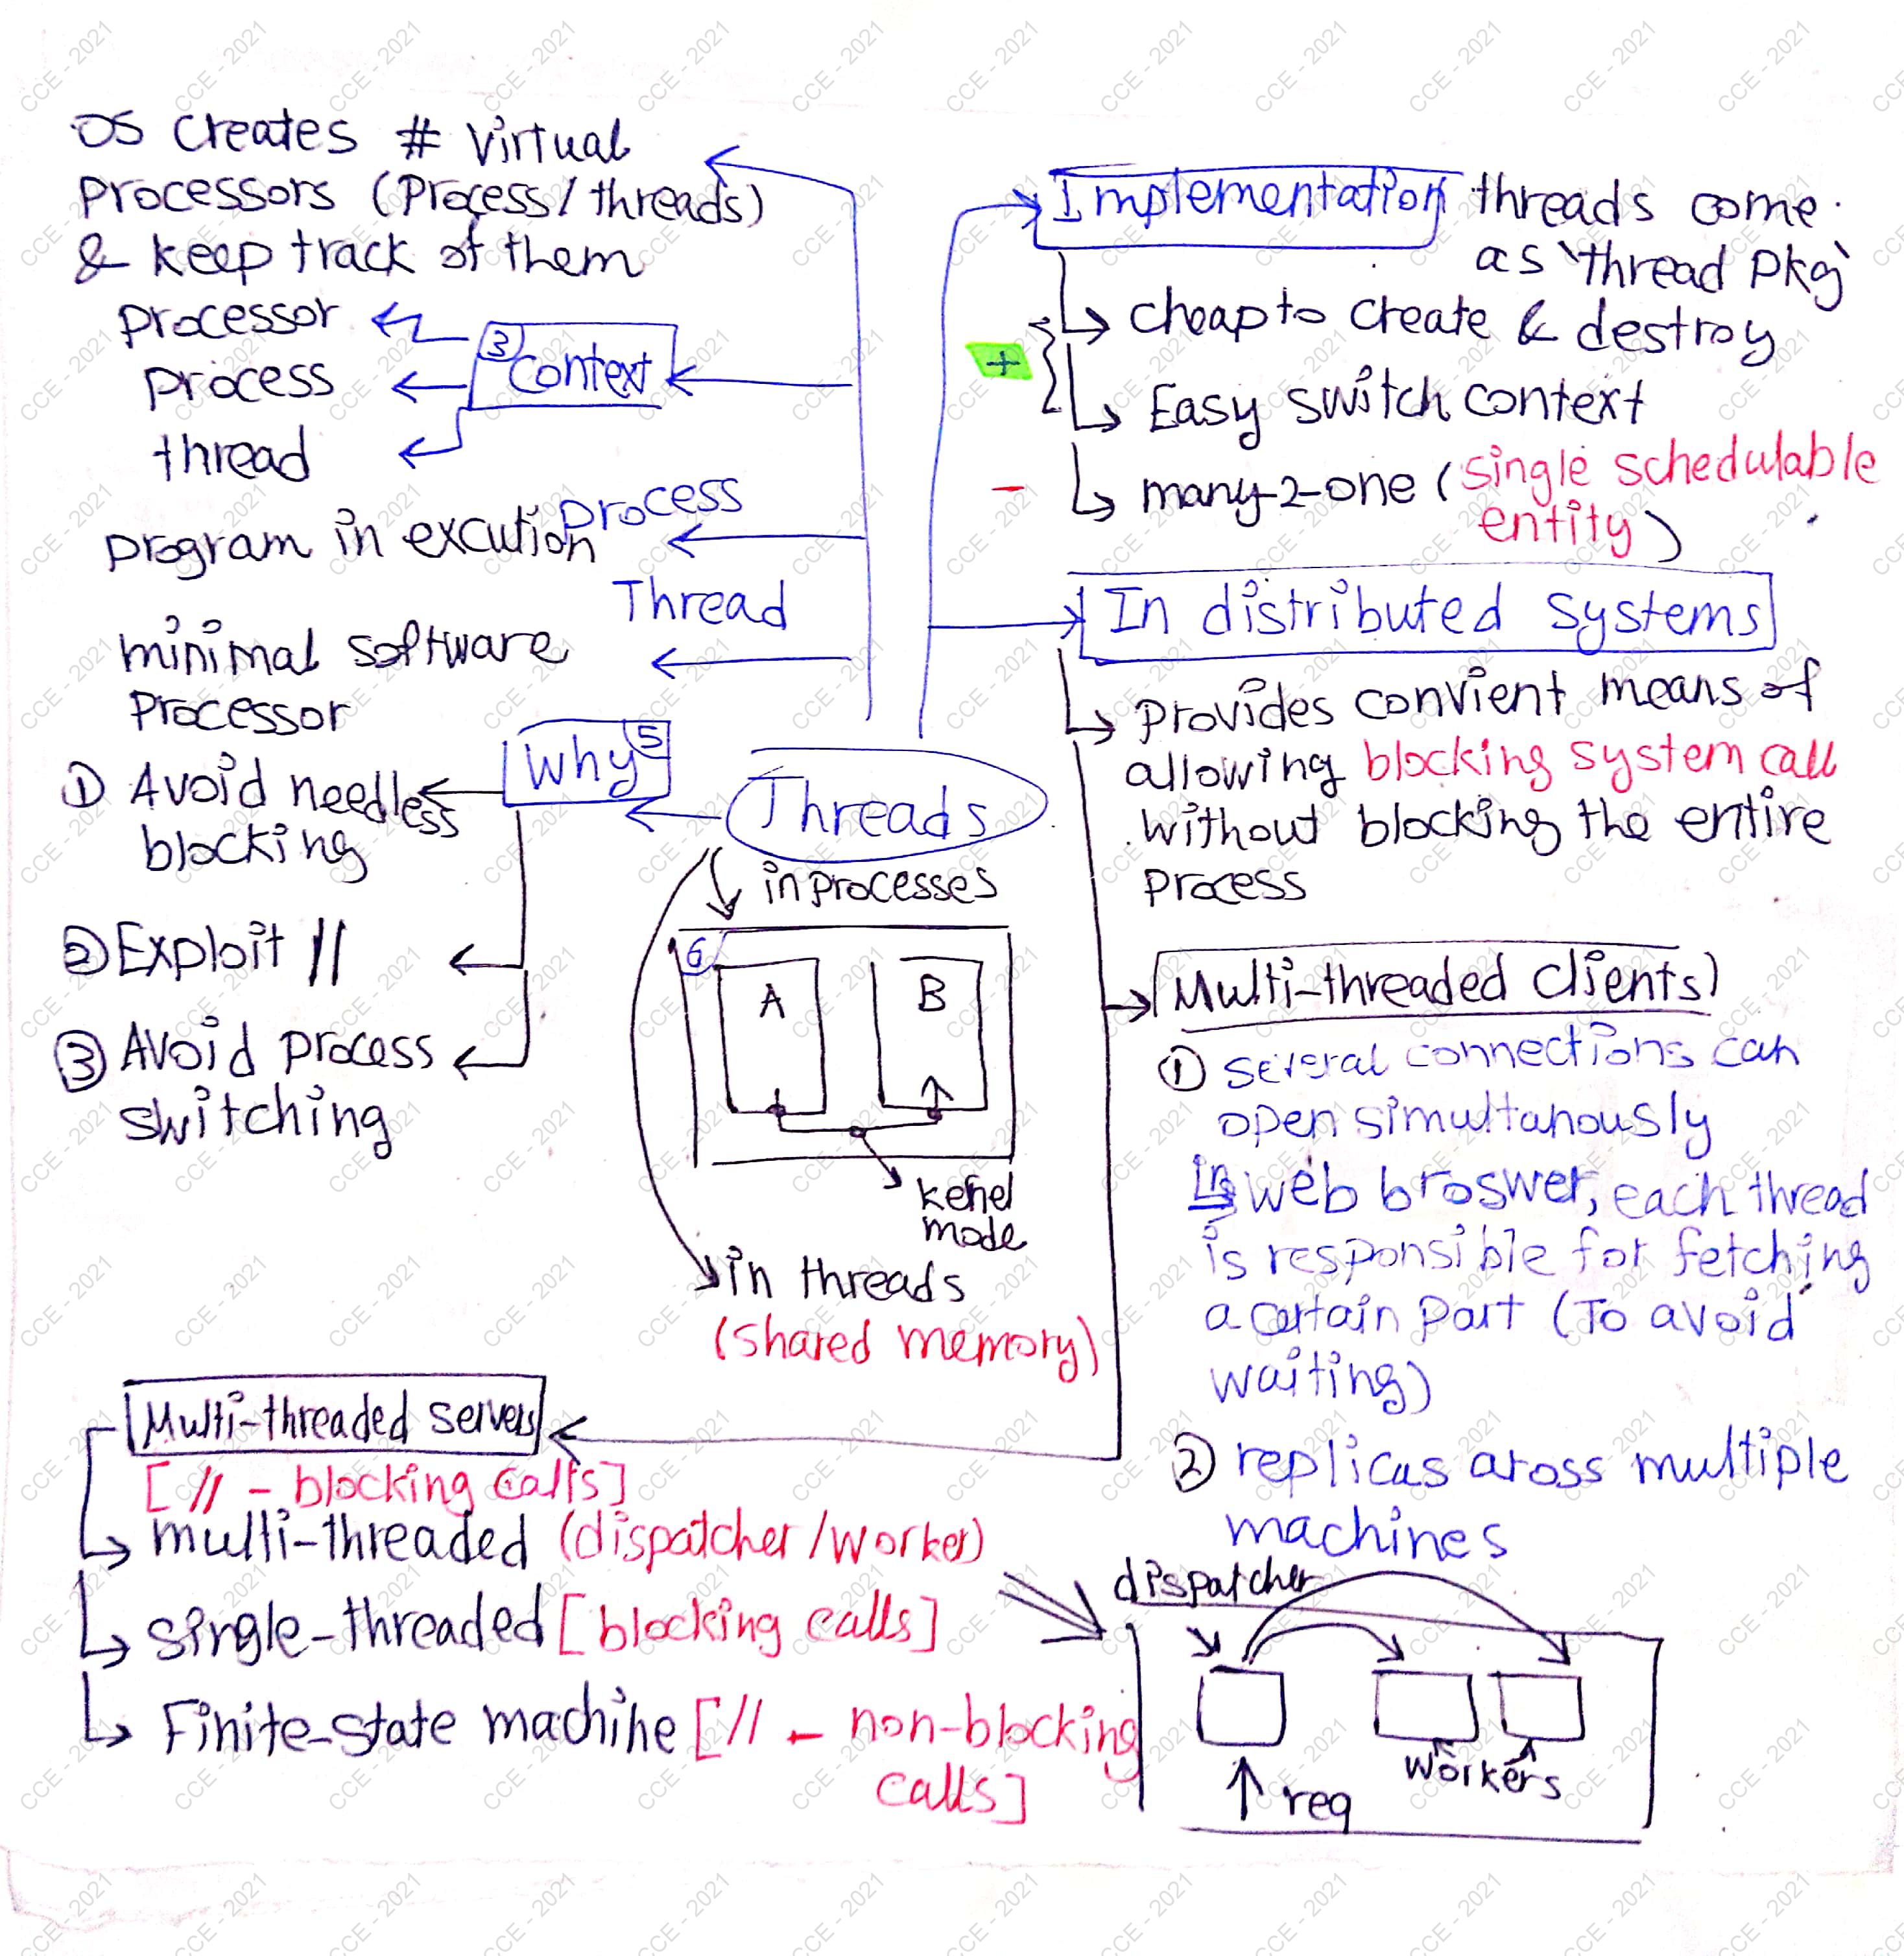 OS creates # virtual
processors (Process/threads)
& keep track of them
3 Context
processor
process
thread
process
program in excution
Thread
minimal software
Processor
Why 5
① Avoid needless
blocking
② Exploit //
③ Avoid process
switching
Threads
in processes
6
A
B
kernel
mode
in threads
(shared memory)
Implementation threads come
as `thread pkg`
+
cheap to create & destroy
Easy switch context
- many-2-one (single schedulable
entity)
In distributed systems
provides convient means of
allowing blocking system call
without blocking the entire
process
Multi-threaded clients
① several connections can
open simultanously
In web broswer, each thread
is responsible for fetching
a certain part (To avoid
waiting)
② replicas aross multiple
machines
Multi-threaded servers
[// - blocking calls]
multi-threaded (dispatcher/worker)
single-threaded [blocking calls]
Finite-state machine [// - non-blocking
calls]
dispatcher
workers
req
CCE - 2021